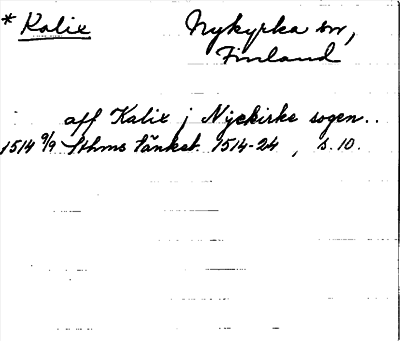 * Kalix Nykyrka sn,
Finland
aff Kalix j Nyekirke sogen..
1514 9/9 Sthms tänkeb. 1514-24, s. 10.